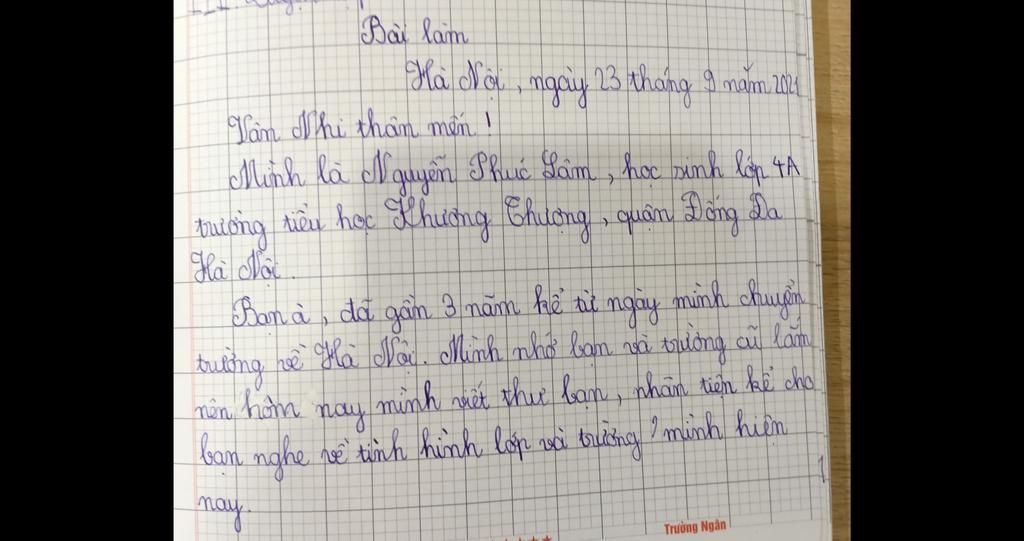 Bài làm
Hà Nội, ngày 23 tháng 9 năm 2021
Vân Nhi thân mến!
Mình là Nguyễn Phúc Lâm, học sinh lớp 4A
trường tiểu học Khương Thượng, quận Đống Đa
Hà Nội.
Bạn à, đã gần 3 năm kể từ ngày mình chuyển
trường về Hà Nội. Mình nhớ bạn và trường cũ lắm
nên hôm nay mình viết thư bạn, nhân tiện kể cho
bạn nghe về tình hình lớp và trường mình hiện
nay.
Trường Ngân